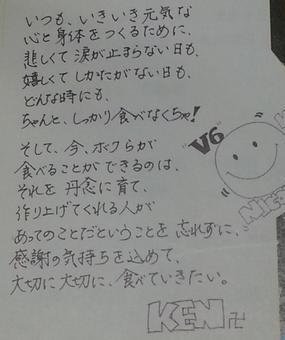 いつも、いきいき元気な
心と身体をつくるために、
悲しくて涙が止まらない日も、
嬉しくてしかたがない日も、
どんな時にも、
ちゃんと、しっかり食べなくちゃ!
そして、今、ボクらが
食べることができるのは、
それを丹念に育て、
作り上げてくれる人が
あってのことだということを忘れずに、
感謝の気持ちを込めて、
大切に大切に、食べていきたい。
"V6"
KEN 卍